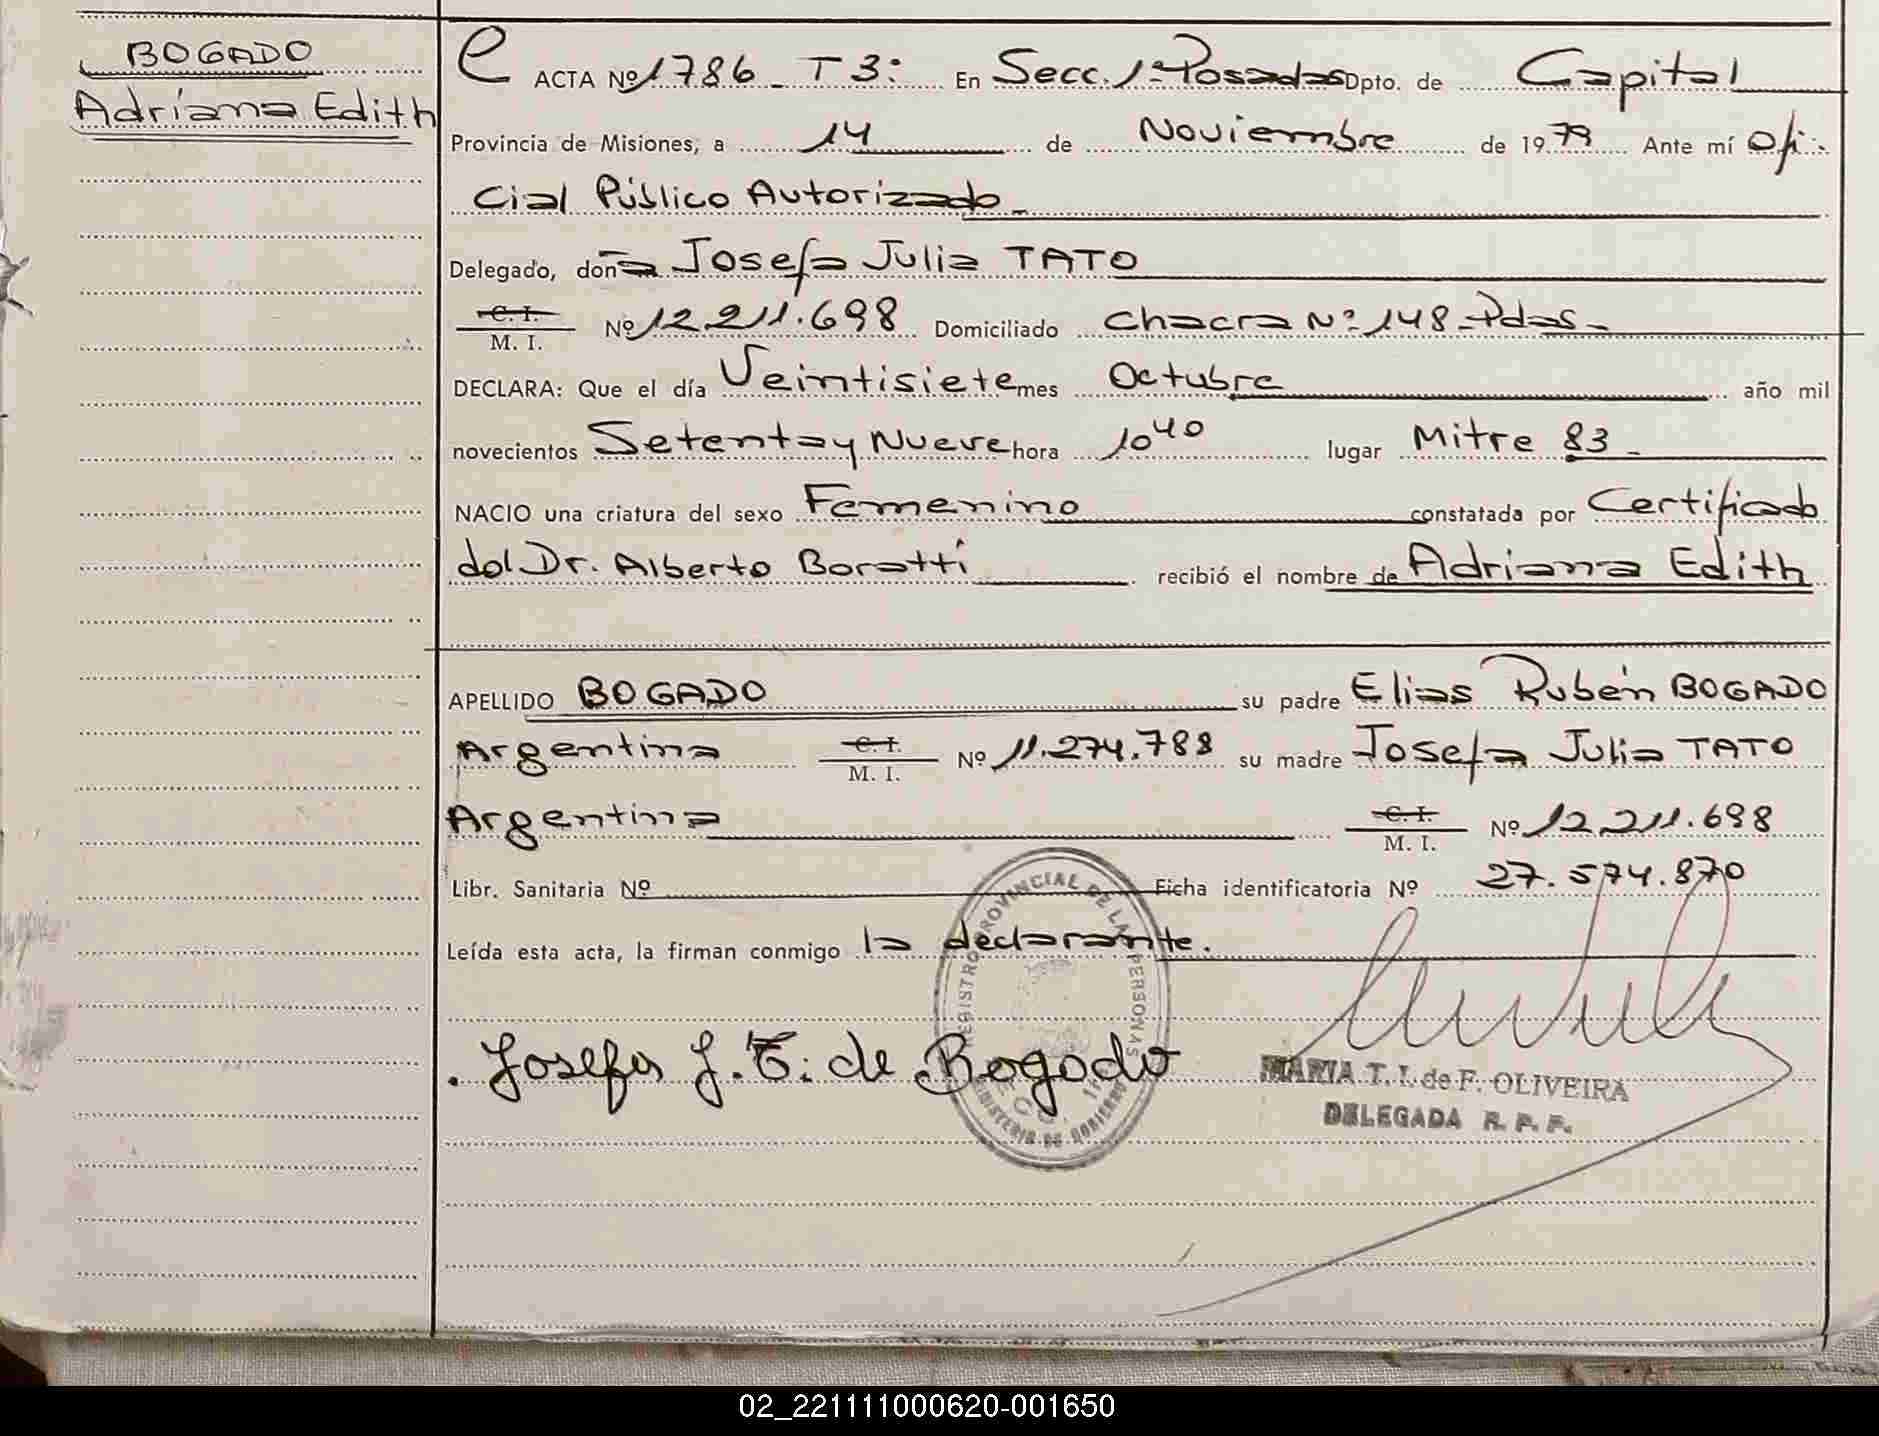 BOGADO
Adriana Edith
e ACTA Nº 1786_ T 3: En Secc. 1ª Posadas Dpto. de Capital
Provincia de Misiones, a 14 de Noviembre de 1979 Ante mí Ofi-
cial Público Autorizado_
Delegado, doña Josefa Julia TATO
C. I.
M. I. Nº 12.211.698 Domiciliado Chacra Nº 148_Pdas_
DECLARA: Que el día Veintisiete mes Octubre año mil
novecientos Setenta y Nueve hora 10 40 lugar Mitre 83_
NACIO una criatura del sexo Femenino constatada por Certificado
del Dr. Alberto Boratti recibió el nombre de Adriana Edith
APELLIDO BOGADO su padre Elias Rubén BOGADO
Argentina C. I. M. I. Nº 11.274.788 su madre Josefa Julia TATO
Argentina C. I. M. I. Nº 12.211.698
Libr. Sanitaria Nº Ficha identificatoria Nº 27.574.870
Leída esta acta, la firman conmigo la declarante.
REGISTRO PROVINCIAL DE LAS PERSONAS
MINISTERIO DE GOBIERNO
Josefa J. T. de Bogado
MARIA T. I. de F. OLIVEIRA
DELEGADA R. P. P.
02_221111000620-001650